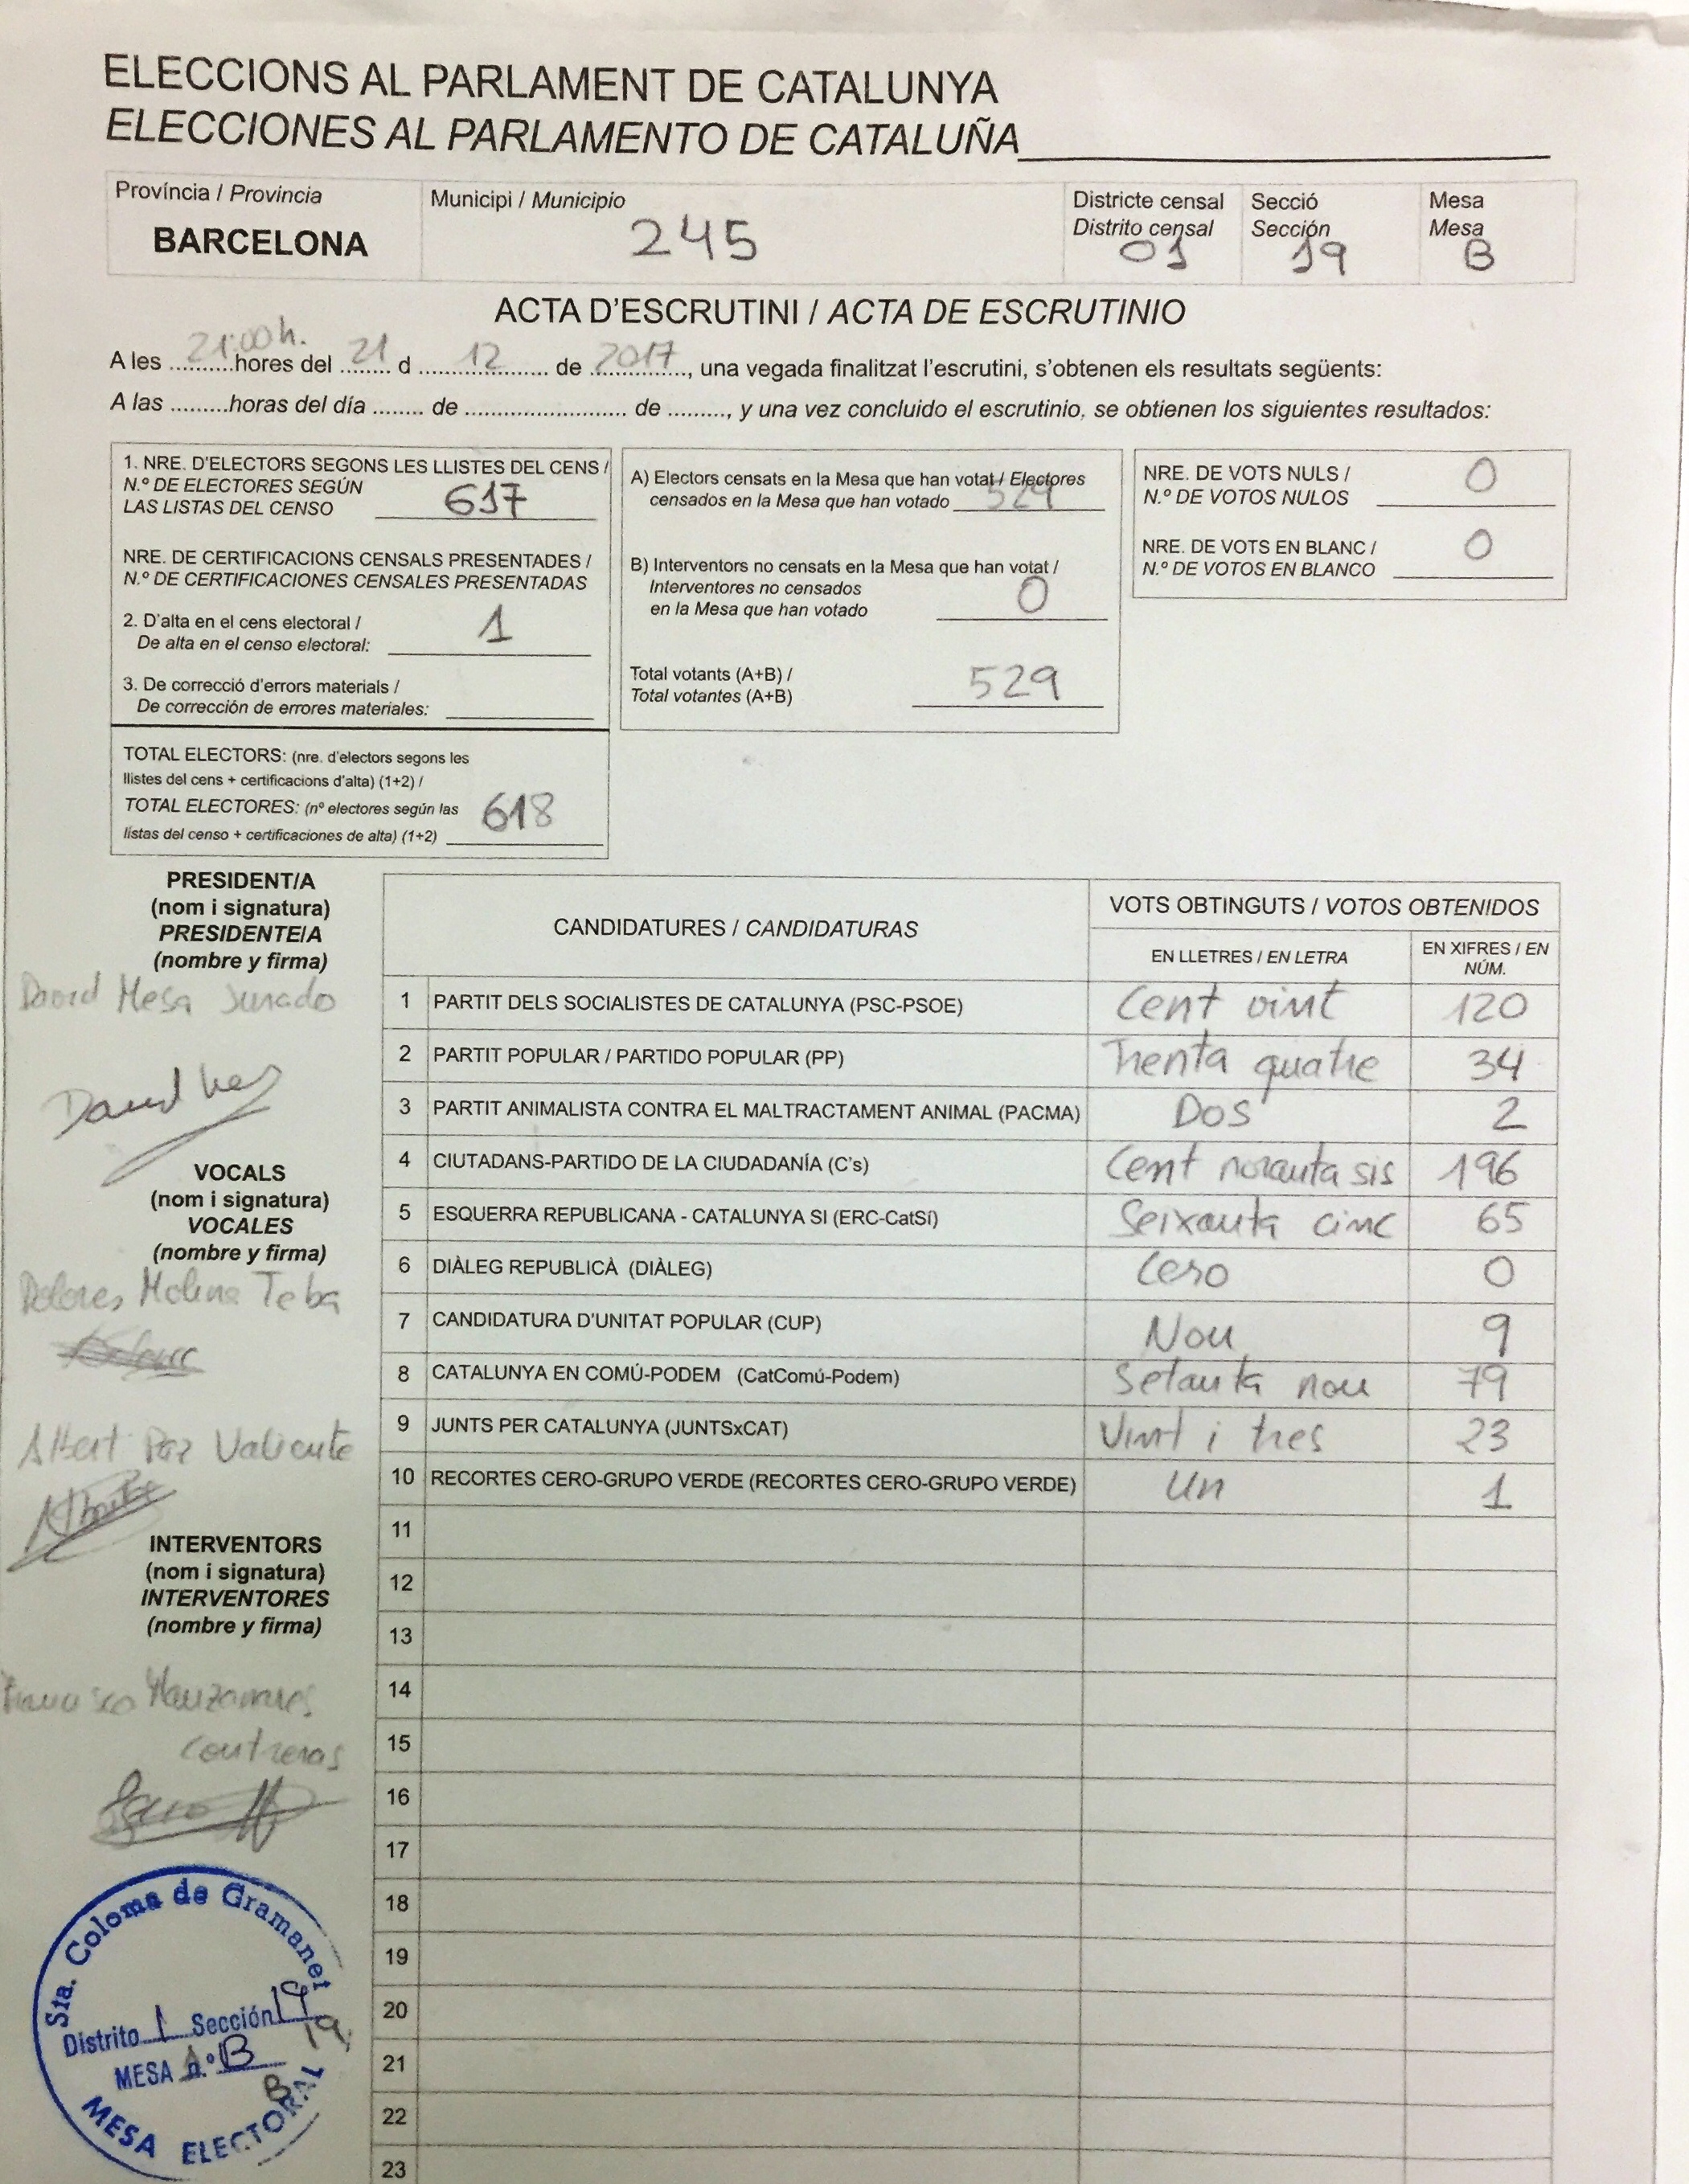 ELECCIONS AL PARLAMENT DE CATALUNYA
ELECCIONES AL PARLAMENTO DE CATALUÑA
Província / Provincia
BARCELONA
Municipi / Municipio
245
Districte censal
Distrito censal
01
Secció
Sección
19
Mesa
Mesa
B
ACTA D'ESCRUTINI / ACTA DE ESCRUTINIO
A les 21:00h. hores del 21 d 12 de 2017, una vegada finalitzat l'escrutini, s'obtenen els resultats següents:
A las .........horas del día ........ de ........................... de ........., y una vez concluido el escrutinio, se obtienen los siguientes resultados:
1. NRE. D'ELECTORS SEGONS LES LLISTES DEL CENS /
N.º DE ELECTORES SEGÚN
LAS LISTAS DEL CENSO 617
NRE. DE CERTIFICACIONS CENSALS PRESENTADES /
N.º DE CERTIFICACIONES CENSALES PRESENTADAS
2. D'alta en el cens electoral /
De alta en el censo electoral: 1
3. De correcció d'errors materials /
De corrección de errores materiales:
TOTAL ELECTORS: (nre. d'electors segons les
llistes del cens + certificacions d'alta) (1+2) /
TOTAL ELECTORES: (nº electores según las
listas del censo + certificaciones de alta) (1+2) 618
A) Electors censats en la Mesa que han votat / Electores
censados en la Mesa que han votado 529
B) Interventors no censats en la Mesa que han votat /
Interventores no censados
en la Mesa que han votado 0
Total votants (A+B) /
Total votantes (A+B) 529
NRE. DE VOTS NULS /
N.º DE VOTOS NULOS 0
NRE. DE VOTS EN BLANC /
N.º DE VOTOS EN BLANCO 0
PRESIDENT/A
(nom i signatura)
PRESIDENTE/A
(nombre y firma)
David Mesa Jurado
VOCALS
(nom i signatura)
VOCALES
(nombre y firma)
Dolores Molina Teba
Albert Paz Valiente
INTERVENTORS
(nom i signatura)
INTERVENTORES
(nombre y firma)
Francisco Manzanares
Contreras
CANDIDATURES / CANDIDATURAS
VOTS OBTINGUTS / VOTOS OBTENIDOS
EN LLETRES / EN LETRA
EN XIFRES / EN
NÚM.
1 PARTIT DELS SOCIALISTES DE CATALUNYA (PSC-PSOE) Cent vint 120
2 PARTIT POPULAR / PARTIDO POPULAR (PP) Trenta quatre 34
3 PARTIT ANIMALISTA CONTRA EL MALTRACTAMENT ANIMAL (PACMA) Dos 2
4 CIUTADANS-PARTIDO DE LA CIUDADANÍA (C's) Cent noranta sis 196
5 ESQUERRA REPUBLICANA - CATALUNYA SI (ERC-CatSí) Seixanta cinc 65
6 DIÀLEG REPUBLICÀ (DIÀLEG) Cero 0
7 CANDIDATURA D'UNITAT POPULAR (CUP) Nou 9
8 CATALUNYA EN COMÚ-PODEM (CatComú-Podem) Setanta nou 79
9 JUNTS PER CATALUNYA (JUNTSxCAT) Vint i tres 23
10 RECORTES CERO-GRUPO VERDE (RECORTES CERO-GRUPO VERDE) Un 1
11
12
13
14
15
16
17
18
19
20
21
22
23
Sta. Coloma de Gramanet
Distrito 1 Sección 19
19
MESA n.º B
B
MESA ELECTORAL